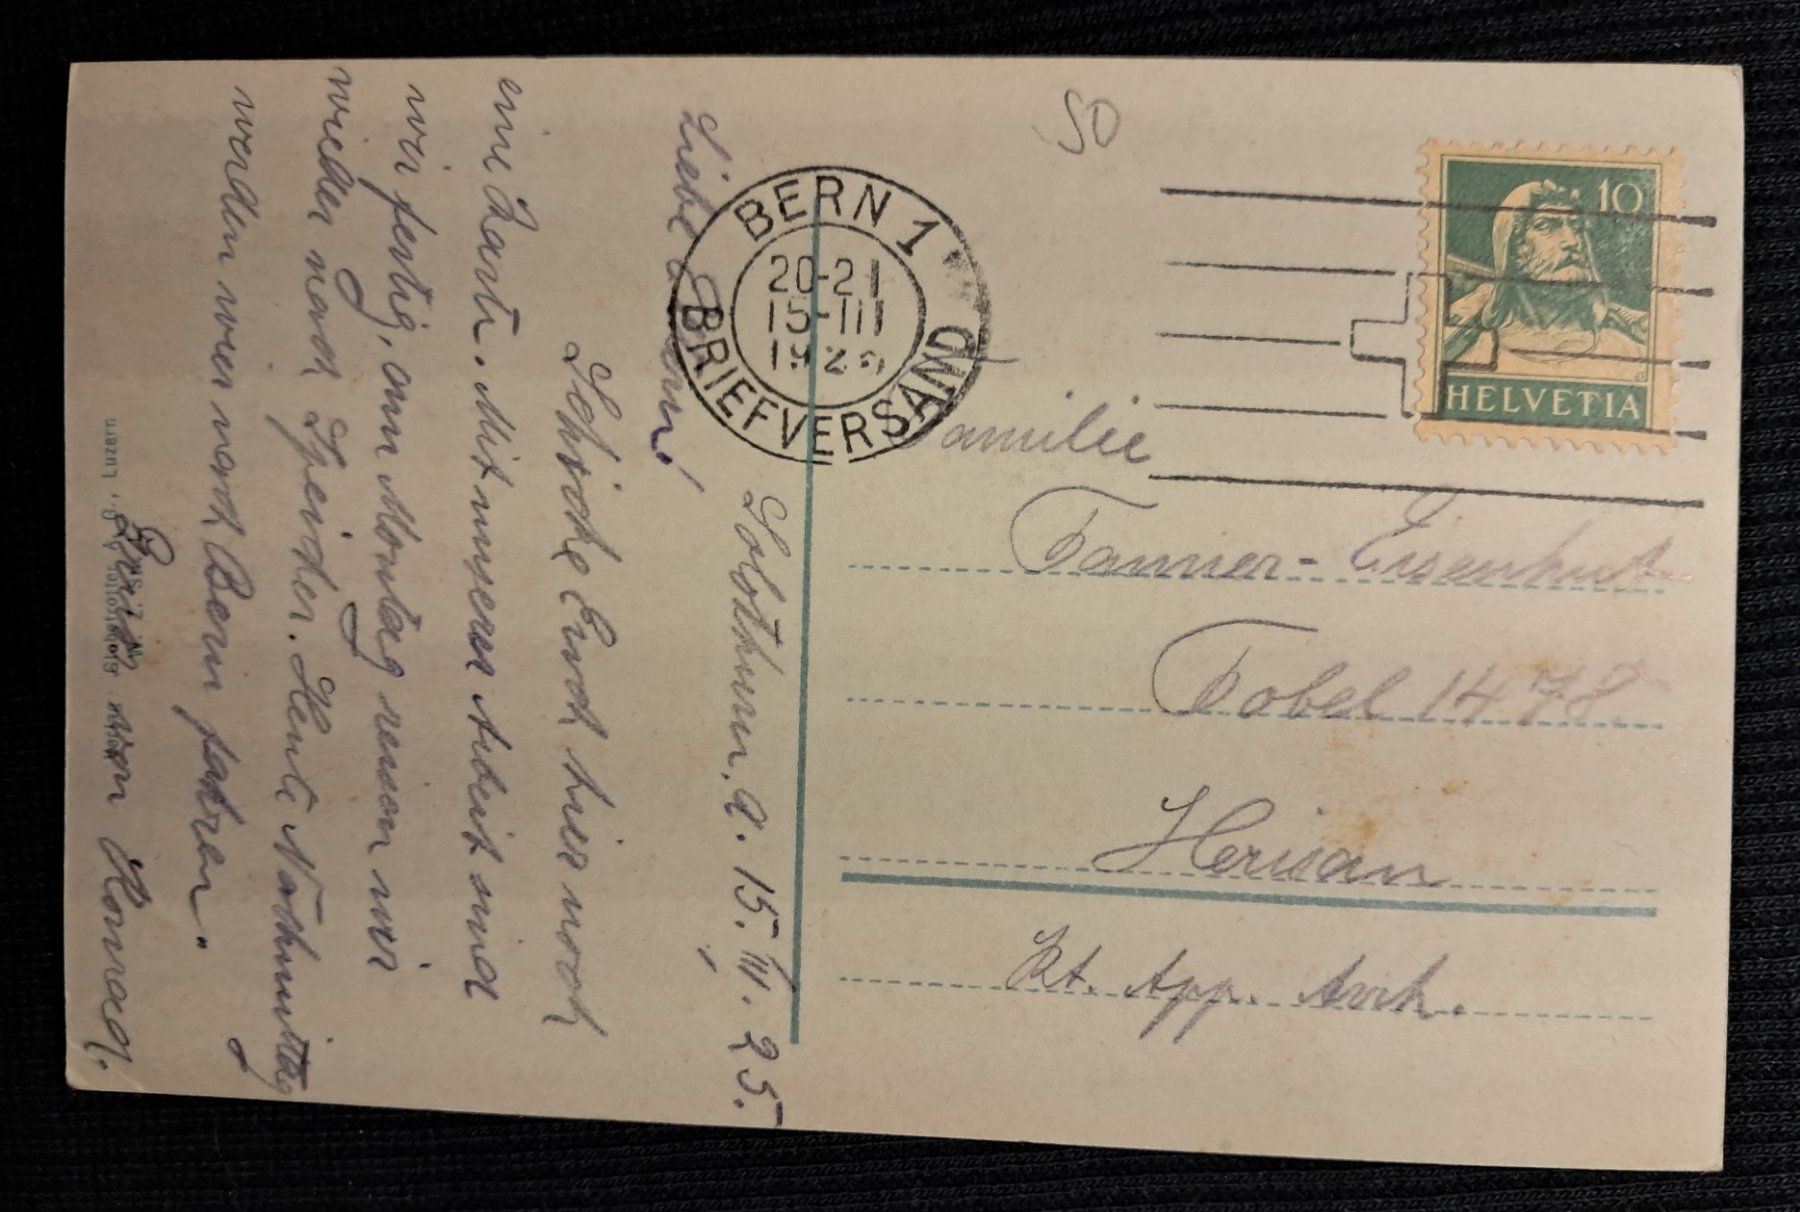 Solothurn, a. 15. III. 25.
Liebe
Schicke Euch hier noch
eine Karte. Mit unserer Arbeit sind
wir fertig, am Montag reisen wir
wieder nach Speicher. Heute Nachmittag
werden wir nach Bern fahren.
Gruss von Konrad.
Globetrotter A. G., Luzern
BERN 1
20-21
15-III
BRIEFVERSAND
50
10
HELVETIA
Familie
Tanner-Eisenhut
Tobel 1478
Herisau
Kt. App. Avrh.